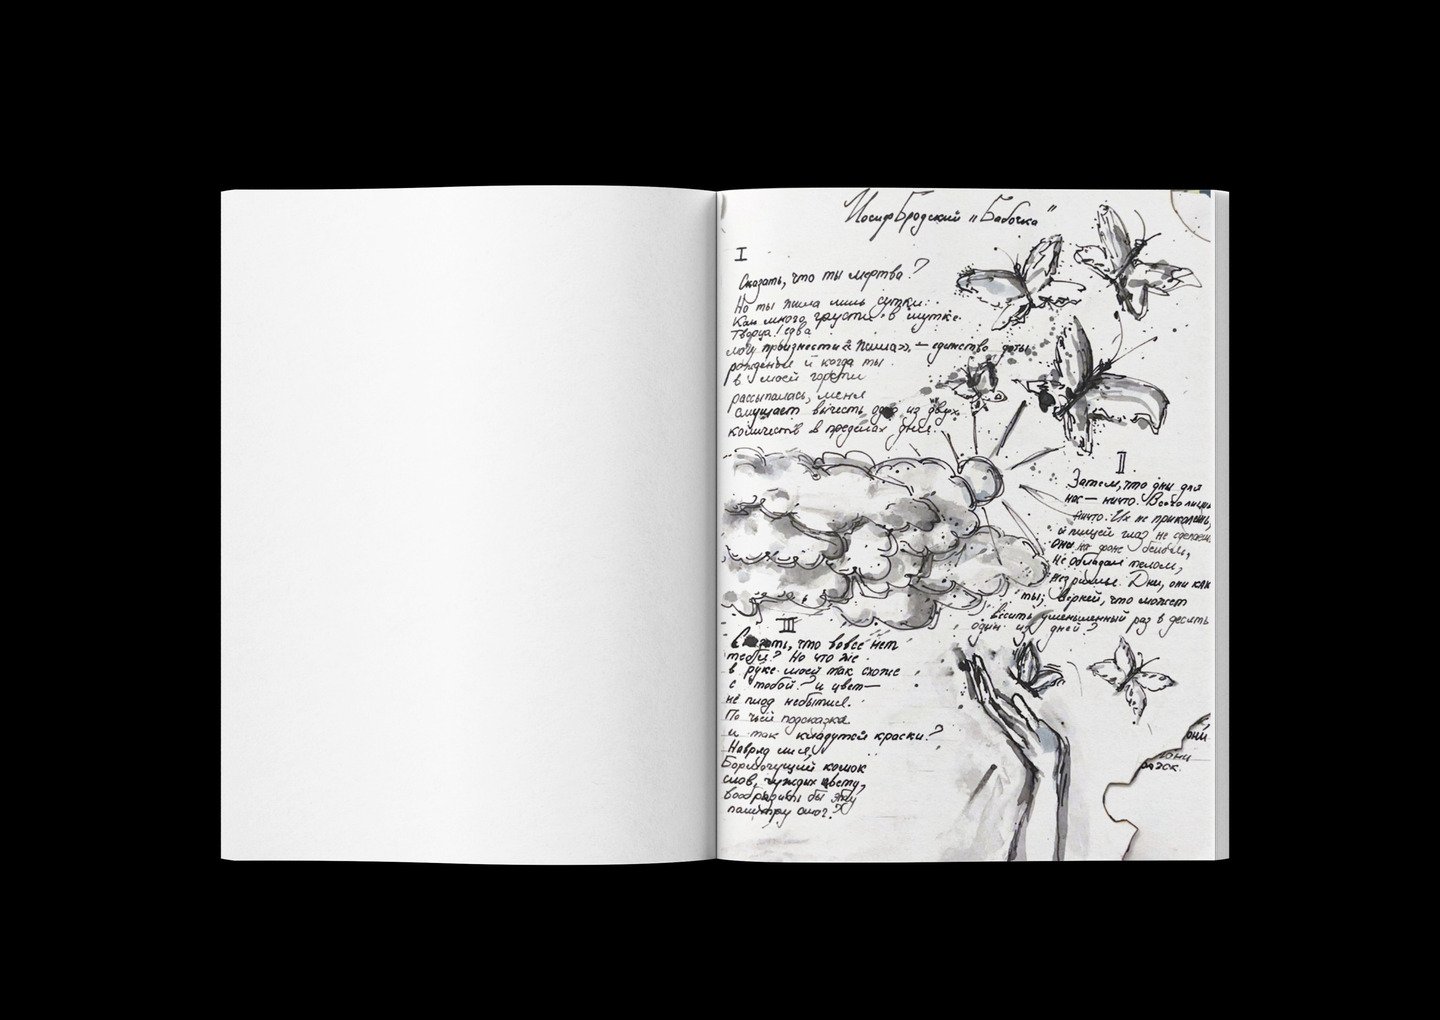 Иосиф Бродский „Бабочка"
I
Сказать, что ты мертва?
Но ты жила лишь сутки.
Как много грусти в шутке
Творца! едва
могу произнести «жила», — единство даты
рожденья и когда ты
в моей горсти
рассыпалась, меня
смущает вычесть одно из двух
количеств в пределах дня.
II
Затем, что дни для
нас — ничто. Всего лишь
ничто. Их не приколешь,
и пищей глаз не сделаешь
они на фоне белом,
не обладая телом,
незримы. Дни, они как
ты; верней, что может
весить уменьшенный раз в десять
один из дней?
III
Сказать, что вовсе нет
тебя? Но что же
в руке моей так схоже
с тобой? и цвет —
не плод небытия.
По чьей подсказке
и так кладутся краски?
Навряд ли я,
бормочущий комок
слов, чуждых цвету,
вообразить бы эту
палитру смог?
они